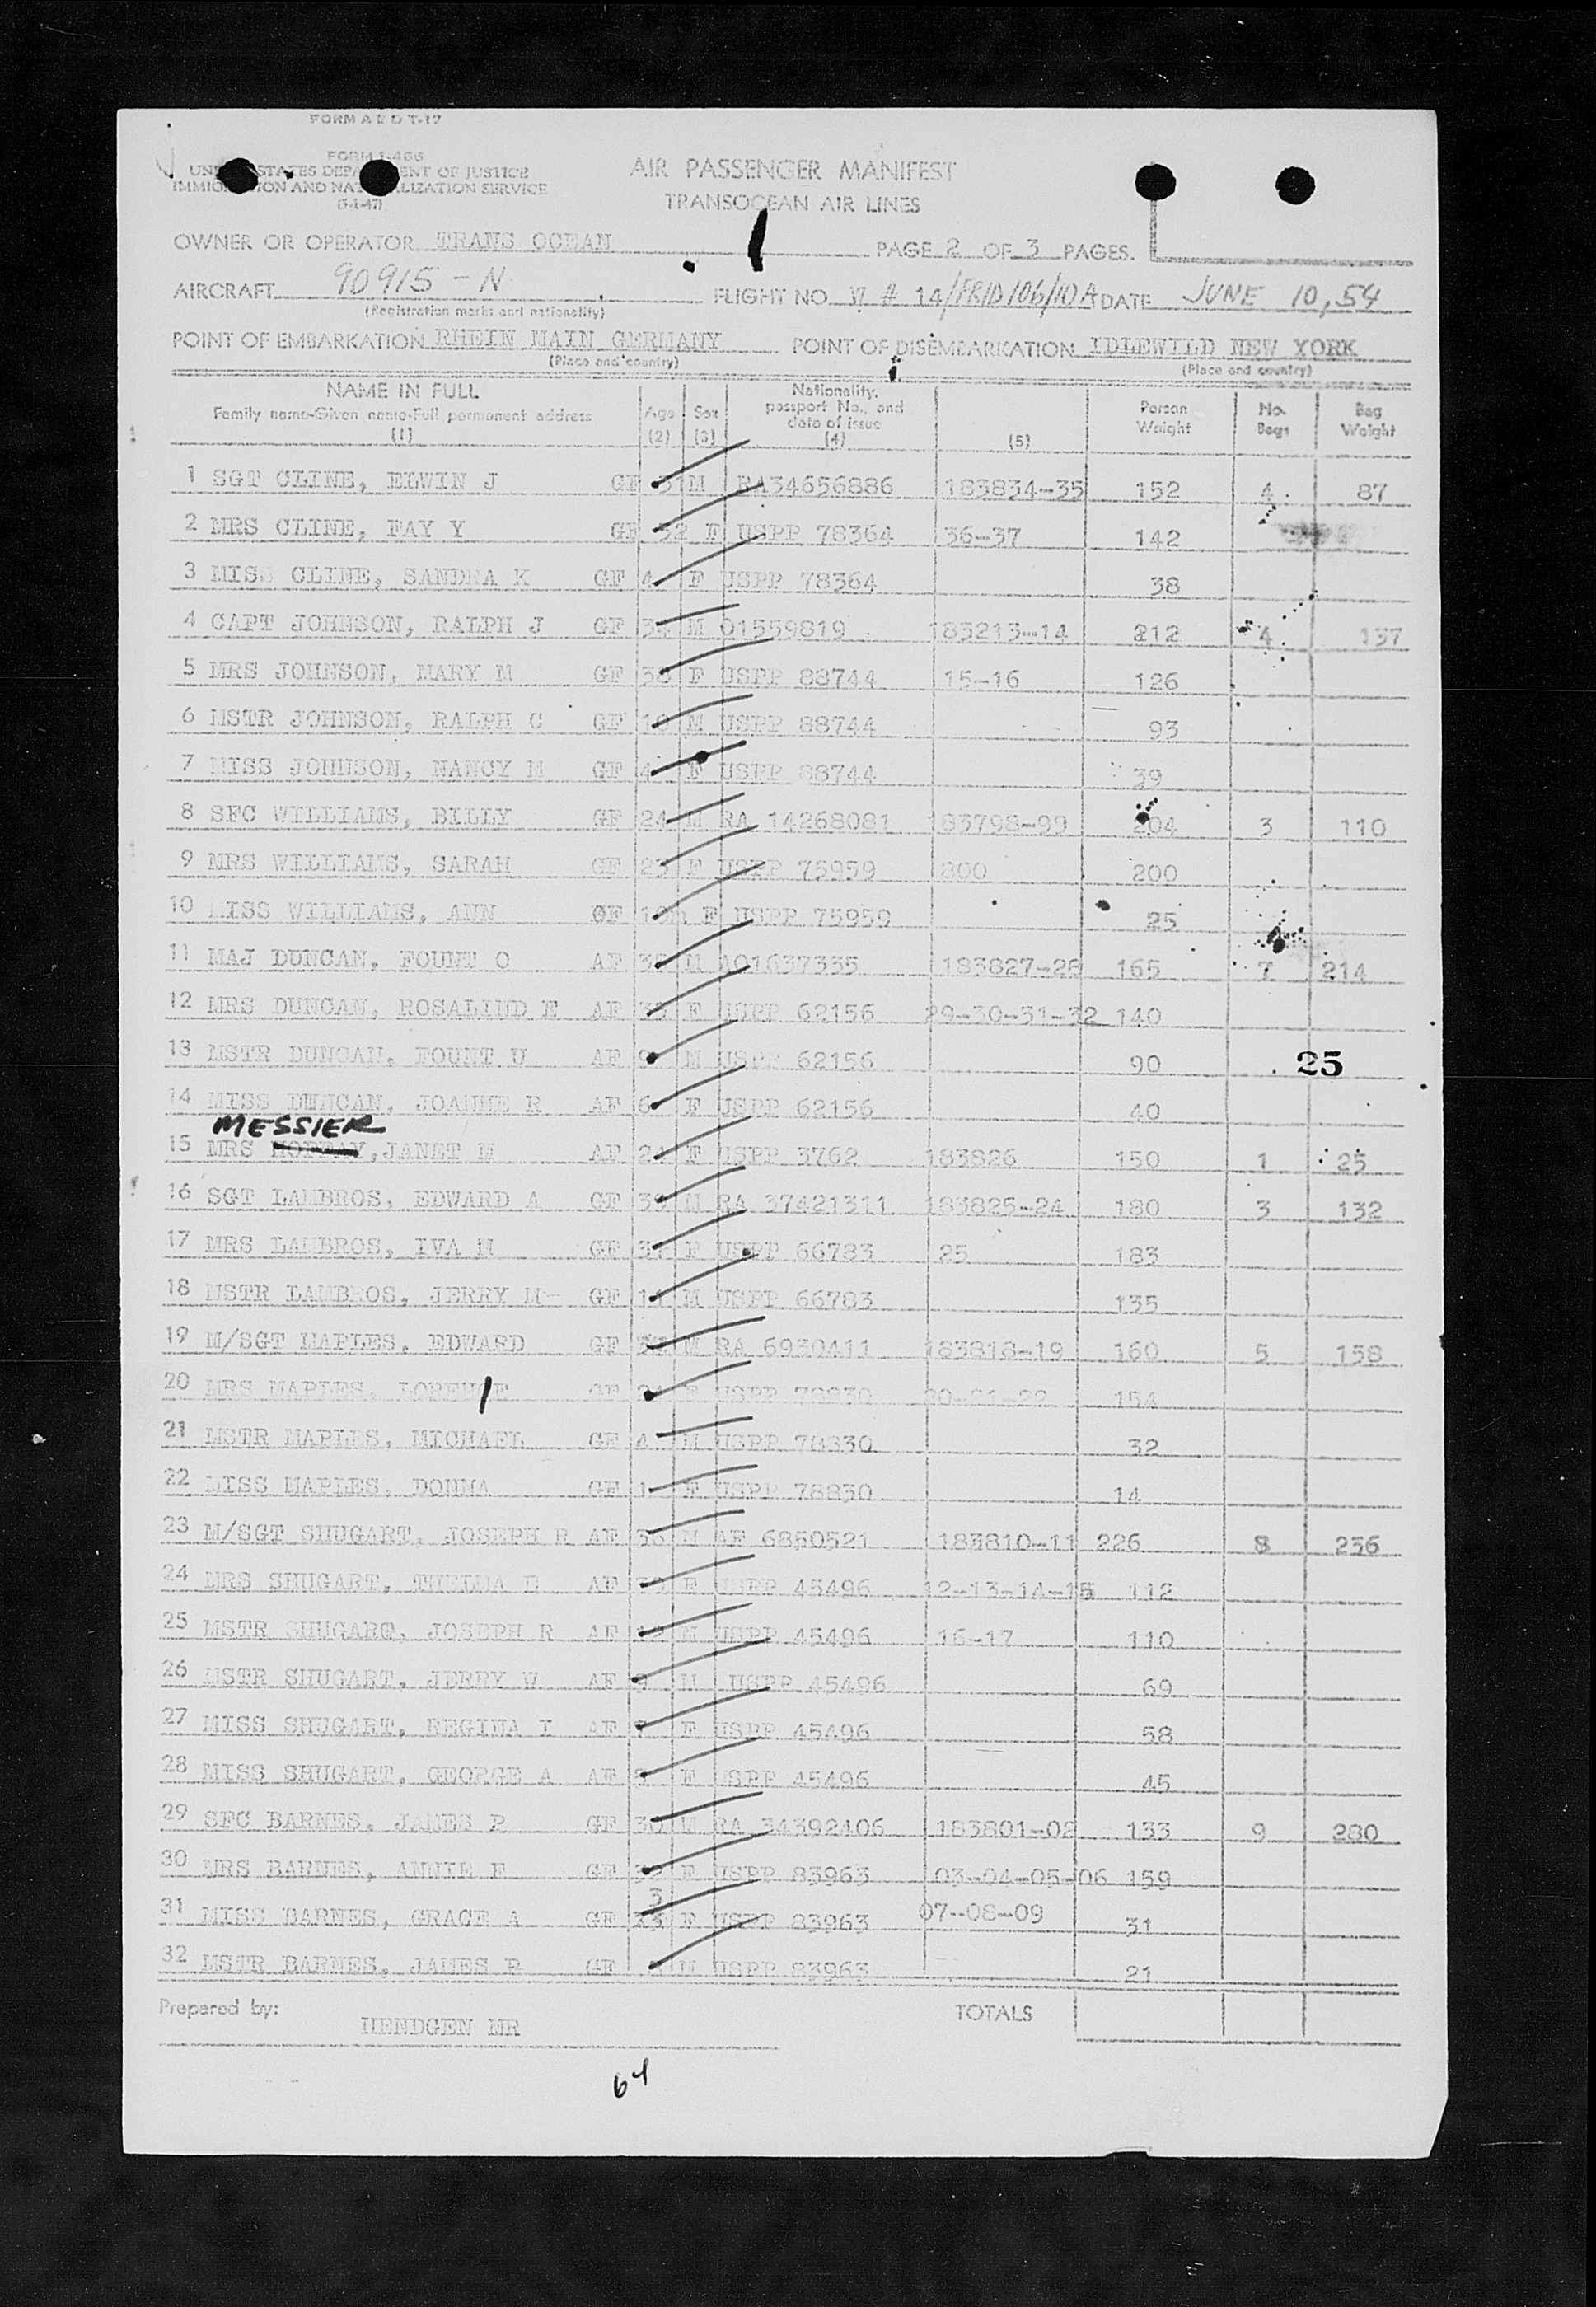 FORM A E D T-17
FORM I-466
UNITED STATES DEPARTMENT OF JUSTICE
IMMIGRATION AND NATURALIZATION SERVICE
AIR PASSENGER MANIFEST
TRANSOCEAN AIR LINES
OWNER OR OPERATOR TRANS OCEAN PAGE 2 OF 3 PAGES.
AIRCRAFT 90915-N FLIGHT NO. # 14/FRID/106/10A DATE JUNE 10, 54
(Registration marks and nationality)
POINT OF EMBARKATION RHEIN MAIN GERMANY POINT OF DISEMBARKATION IDLEWILD NEW YORK
(Place and country) (Place and country)
NAME IN FULL Nationality, passport No., and date of issue Person Weight No. Bags Bag Weight
Family name-Given name-Full permanent address Age Sex
(1) (2) (3) (4) (5)
1 SGT CLINE, ELWIN J GF M RA34656886 183834-35 152 4 87
2 MRS CLINE, FAY Y GF 32 F USPP 78364 36-37 142
3 MISS CLINE, SANDRA K GF 4 F USPP 78364 38
4 CAPT JOHNSON, RALPH J GF M O1559819 183213-14 212 4 137
5 MRS JOHNSON, MARY M GF 38 F USPP 88744 15-16 126
6 MSTR JOHNSON, RALPH C GF M USPP 88744 93
7 MISS JOHNSON, NANCY M GF 4 F USPP 88744 39
8 SFC WILLIAMS, BILLY GF 24 M RA 14268081 183798-99 204 3 110
9 MRS WILLIAMS, SARAH GF 23 F USPP 75959 800 200
10 MISS WILLIAMS, ANN GF F USPP 75959 25
11 MAJ DUNCAN, FOUNT O AF M AO1637335 183827-28 165 7 214
12 MRS DUNCAN, ROSALIND E AF F USPP 62156 29-30-31-32 140
13 MSTR DUNCAN, FOUNT U AF 9 M USPP 62156 90 25
14 MISS DUNCAN, JOANNE R AF 6 F USPP 62156 40
MESSIER
15 MRS JANET M AF 24 F USPP 3762 183826 150 1 25
16 SGT LAMBROS, EDWARD A GF M RA 37421311 183825-24 180 3 132
17 MRS LAMBROS, IVA M GF F USPP 66783 25 183
18 MSTR LAMBROS, JERRY M GF M USPP 66783 135
19 M/SGT MAPLES, EDWARD GF M RA 6930411 183818-19 160 5 158
20 MRS MAPLES, GF F USPP 78830 20-21-22 154
21 MSTR MAPLES, MICHAEL GF 4 M USPP 78830 32
22 MISS MAPLES, DONNA GF 1 F USPP 78830 14
23 M/SGT SHUGART, JOSEPH R AF 36 M AF 6850521 183810-11 226 8 236
24 MRS SHUGART, THELMA AF F USPP 45496 12-13-14-15 112
25 MSTR SHUGART, JOSEPH R AF 12 M USPP 45496 16-17 110
26 MSTR SHUGART, JERRY W AF 9 M USPP 45496 69
27 MISS SHUGART, REGINA I AF F USPP 45496 58
28 MISS SHUGART, GEORGE A AF F USPP 45496 45
29 SFC BARNES, JAMES P GF 30 M RA 34392406 183801-02 133 9 280
30 MRS BARNES, ANNIE F GF 32 F USPP 83963 03-04-05-06 159
31 MISS BARNES, GRACE A GF 3 F USPP 83963 07-08-09 31
32 MSTR BARNES, JAMES GF M USPP 83963 21
Prepared by: TOTALS
HENDGEN MR
64